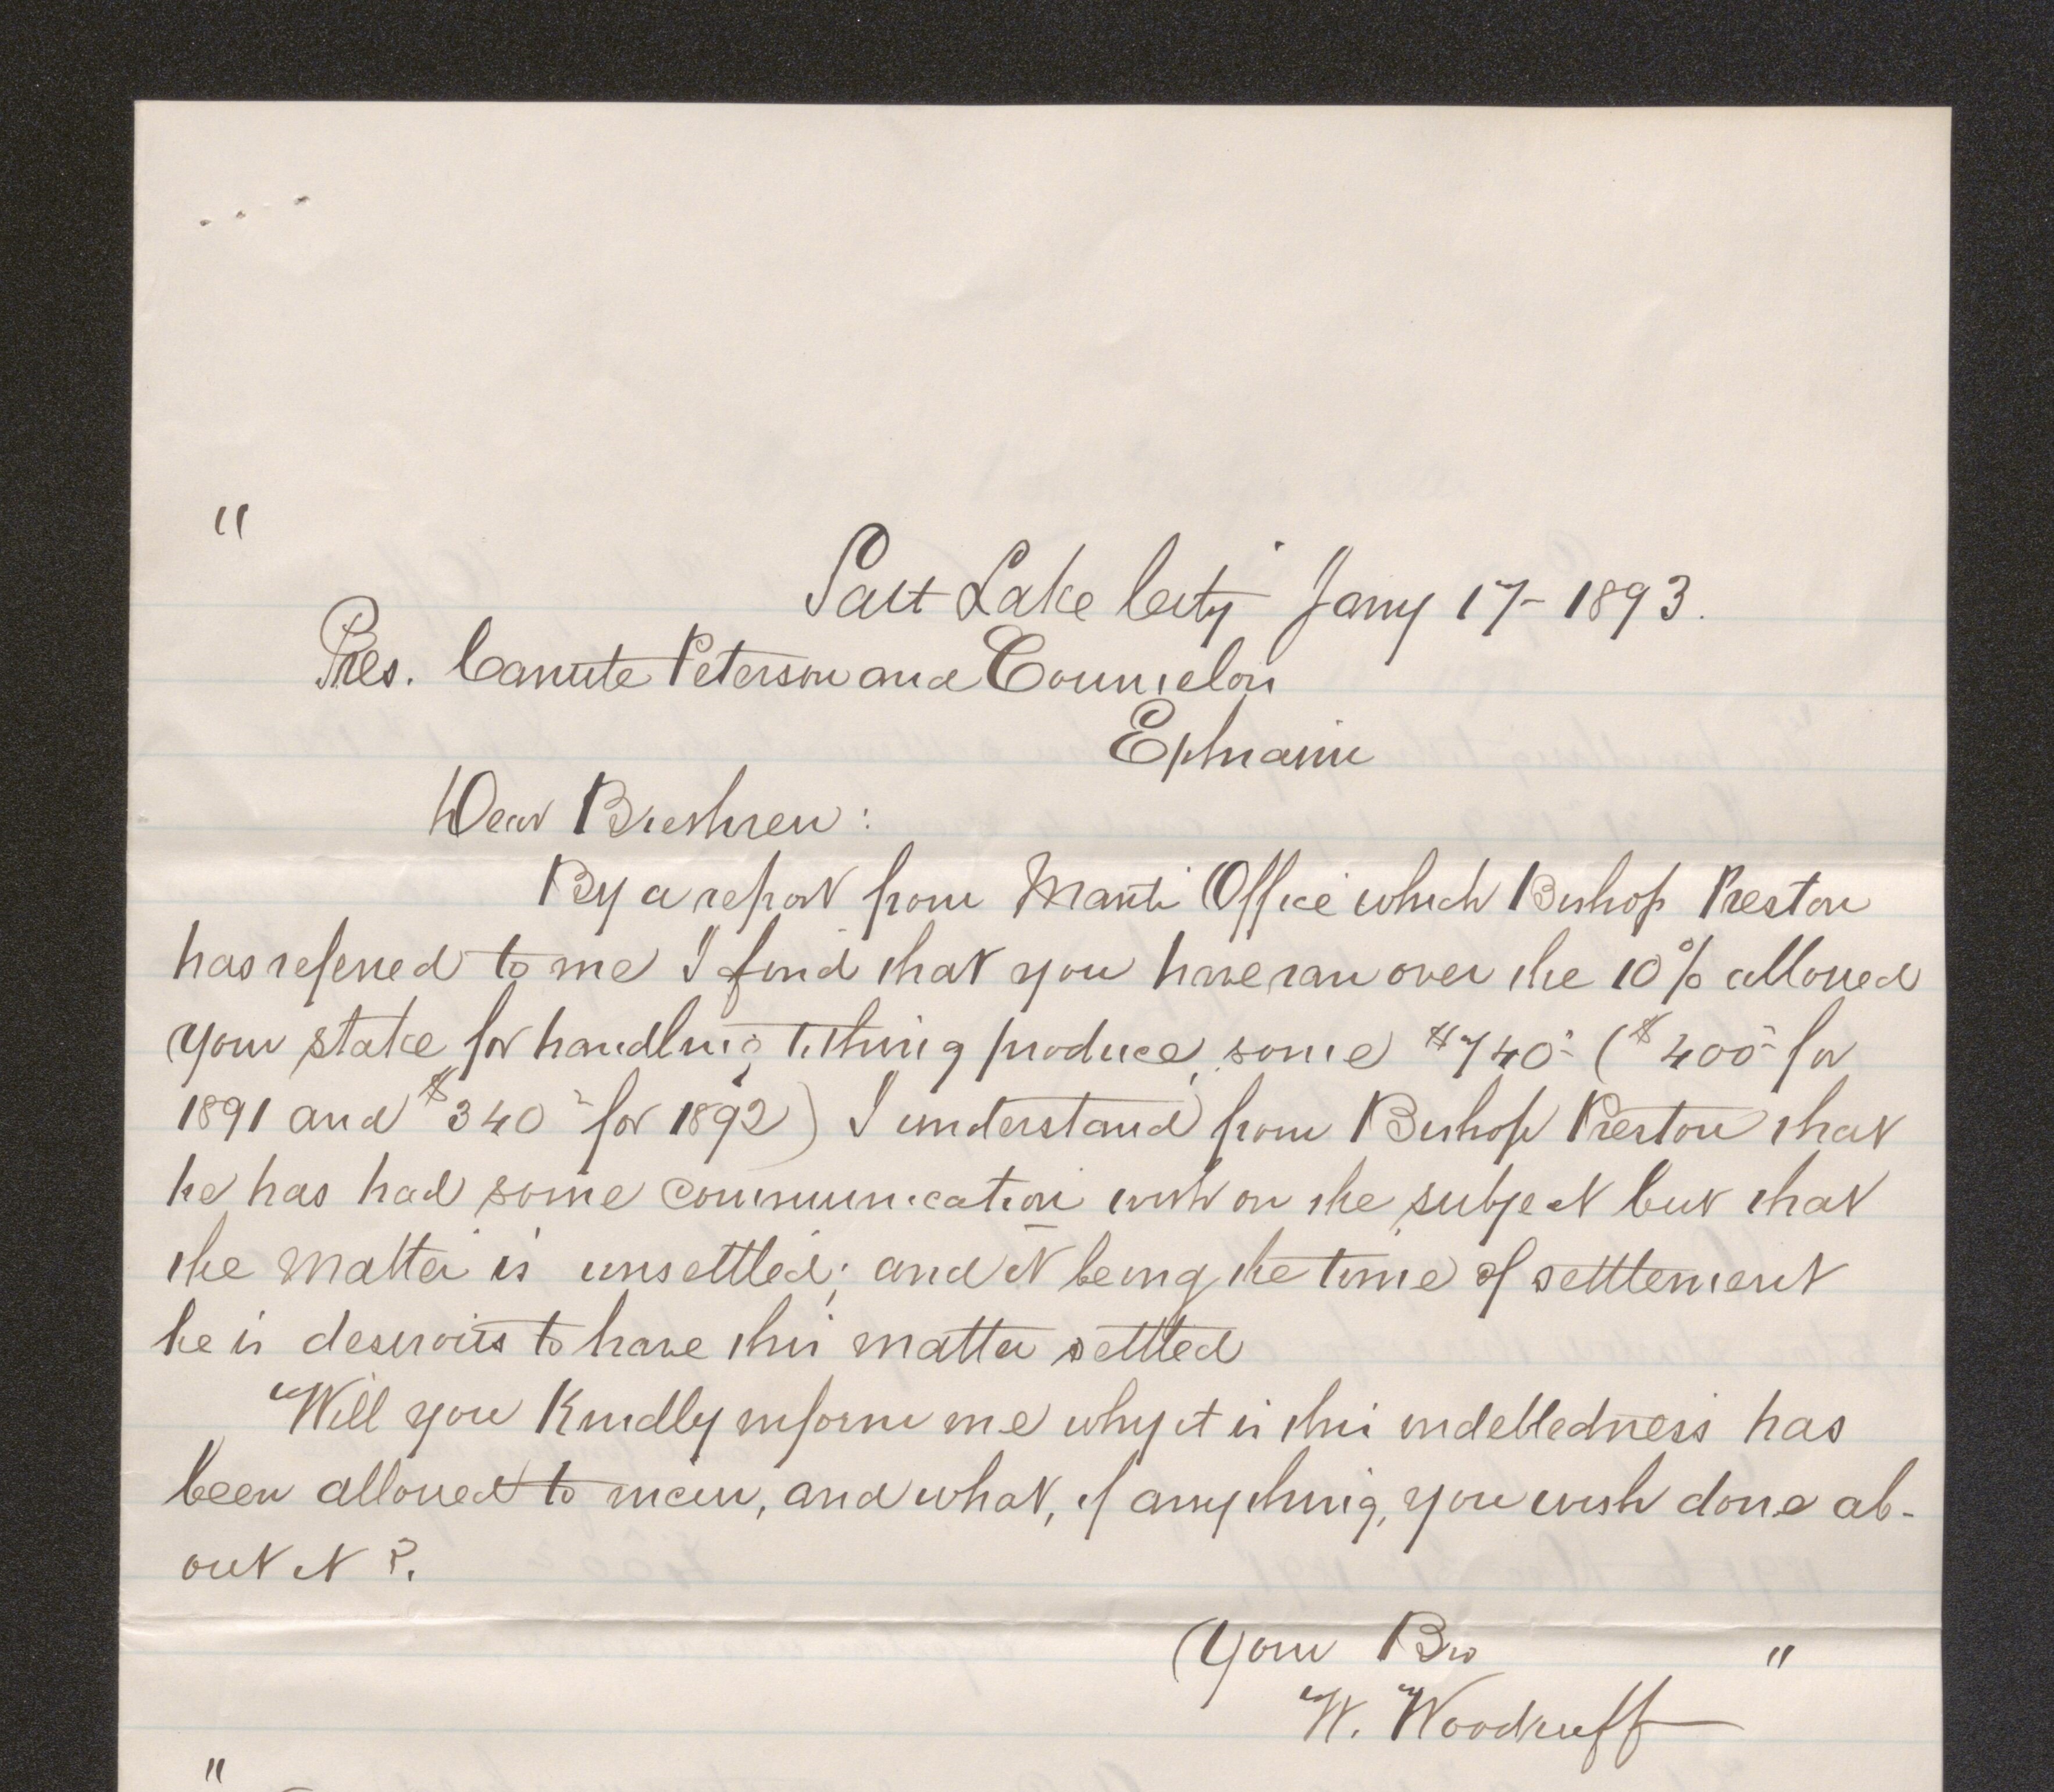 "
Salt Lake City Jany 17- 1893.
Pres. Canute Peterson and Counselors
Ephraim
Dear Brethren:
By a report from Manti Office which Bishop Preston
has refered to me I find that you have ran over the 10% allowed
your stake for handling tithing produce, some $740- ($400- for
1891 and $340- for 1892) I understand from Bishop Preston that
he has had some communication with on the subject but that
the matter is unsettled; and it being the time of settlement
he is desirous to have this matter settled
Will you Kindly inform me why it is this indebtedness has
been allowed to incur, and what, if anything, you wish done ab-
out it?.
Your Bro "
W. Woodruff
"